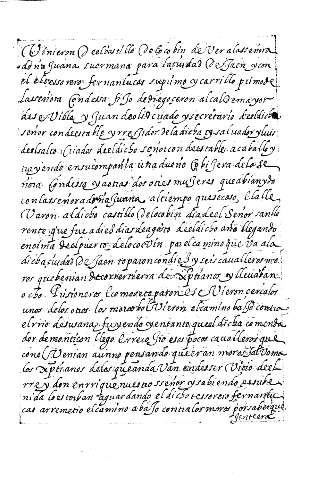 Vinieron del castillo de locobin de ver a la señora
doña Juana su ermana para la ciudad de Jaen y con
el el tessorero fernan lucas su primo y carrillo primo de
la señora condesa fijo de diego ceron alcalde mayor
de sevilla y Juan de olid cuado y secretario del dicho
señor condestable y rregidor de la dicha cibdad y luis
del salto criados del dicho señor condestable a caballo y
trayendo en su compañia una dueña cobijera de la se
ñora condesa y a otras dos o tres mujeres que abian ydo
con la señora doña Juana al tiempo que se caso, e la lle
varon al dicho castillo de locobin dia del Señor san llo
rente que fue a diez dias de agosto del dicho año llegando
encima del puerto de locovin por el camino que va a la
dicha ciudad de Jaen toparon con diez y seis cavalleros mo
ros que benian de correr tierra de xptianos y llevaban
ocho pristoneros e como se toparon e se vieron cerca los
unos de los otros los moros bolvieron el camino baxo contra
el rrio de susana fuyendo y en tanto que el dicho comenda
dor de montizon llego e rrecogio esos pocos cavalleros que
con el venian aun no pensando que eran moros salvo ma
los xptianos de los que andavan en desservicio del
rrey don enrrique nuestro señor y sabiendo de su be
nida lo estaban aguardando el dicho tessorero fernan lu
cas arremetio el camino abaxo contra los moros por saber que
gente era